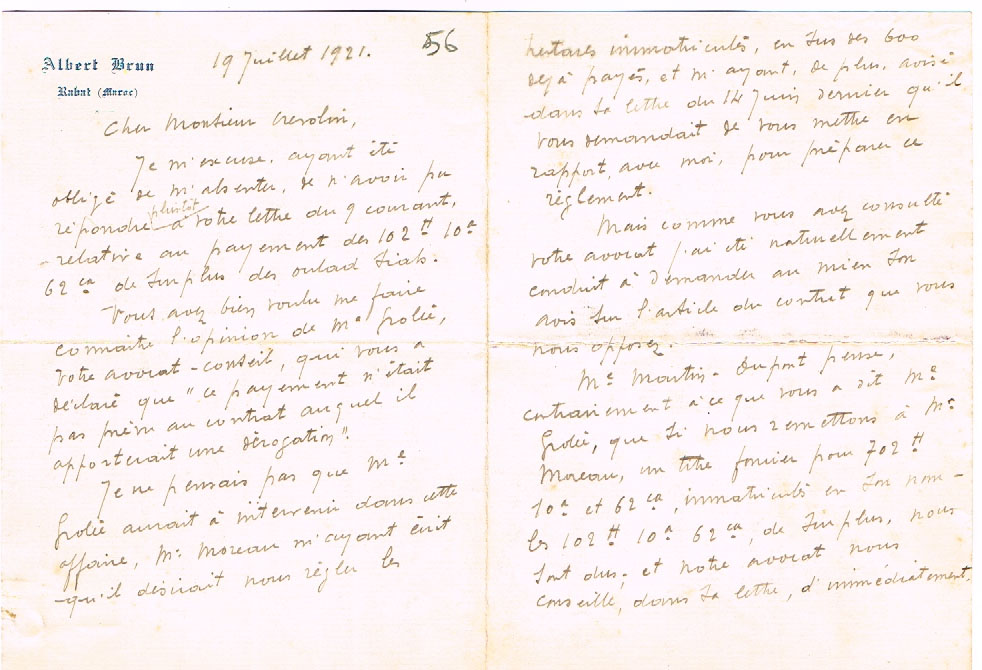 Albert Brun
Rabat (Maroc)
19 Juillet 1921.
56
Cher Monsieur Crerolin,
Je m'excuse, ayant été
obligé de m'absenter, de n'avoir pu
répondre plutôt à votre lettre du 9 courant,
relative au payement des 102 H 10 a
62 ca de surplus des oulad Ziab.
Vous avez bien voulu me faire
connaitre l'opinion de Me Grolée,
votre avocat-conseil, qui vous a
déclaré que "ce payement n'était
pas prévu au contrat auquel il
apporterait une dérogation".
Je ne pensais pas que Me
Grolée aurait à intervenir dans cette
affaire, Mr Moreau m'ayant écrit
qu'il désirait nous régler les
hectares immatriculés, en sus des 600
déjà payés, et m'ayant, de plus, avisé
dans sa lettre du 14 Juin dernier qu'il
vous demandait de vous mettre en
rapport, avec moi, pour préparer ce
règlement.
Mais comme vous avez consulté
votre avocat j'ai été naturellement
conduit à demander au mien son
avis sur l'article du contrat que vous
nous opposez.
Me Martin-Dupont pense,
contrairement à ce que vous a dit Me
Grolée, que si nous remettons à Mr
Moreau, un titre foncier pour 702 H
10 a et 62 ca, immatriculés en son nom -
les 102 H 10 a 62 ca, de surplus, nous
sont dus; et notre avocat nous
conseille, dans sa lettre, d'immédiatement,